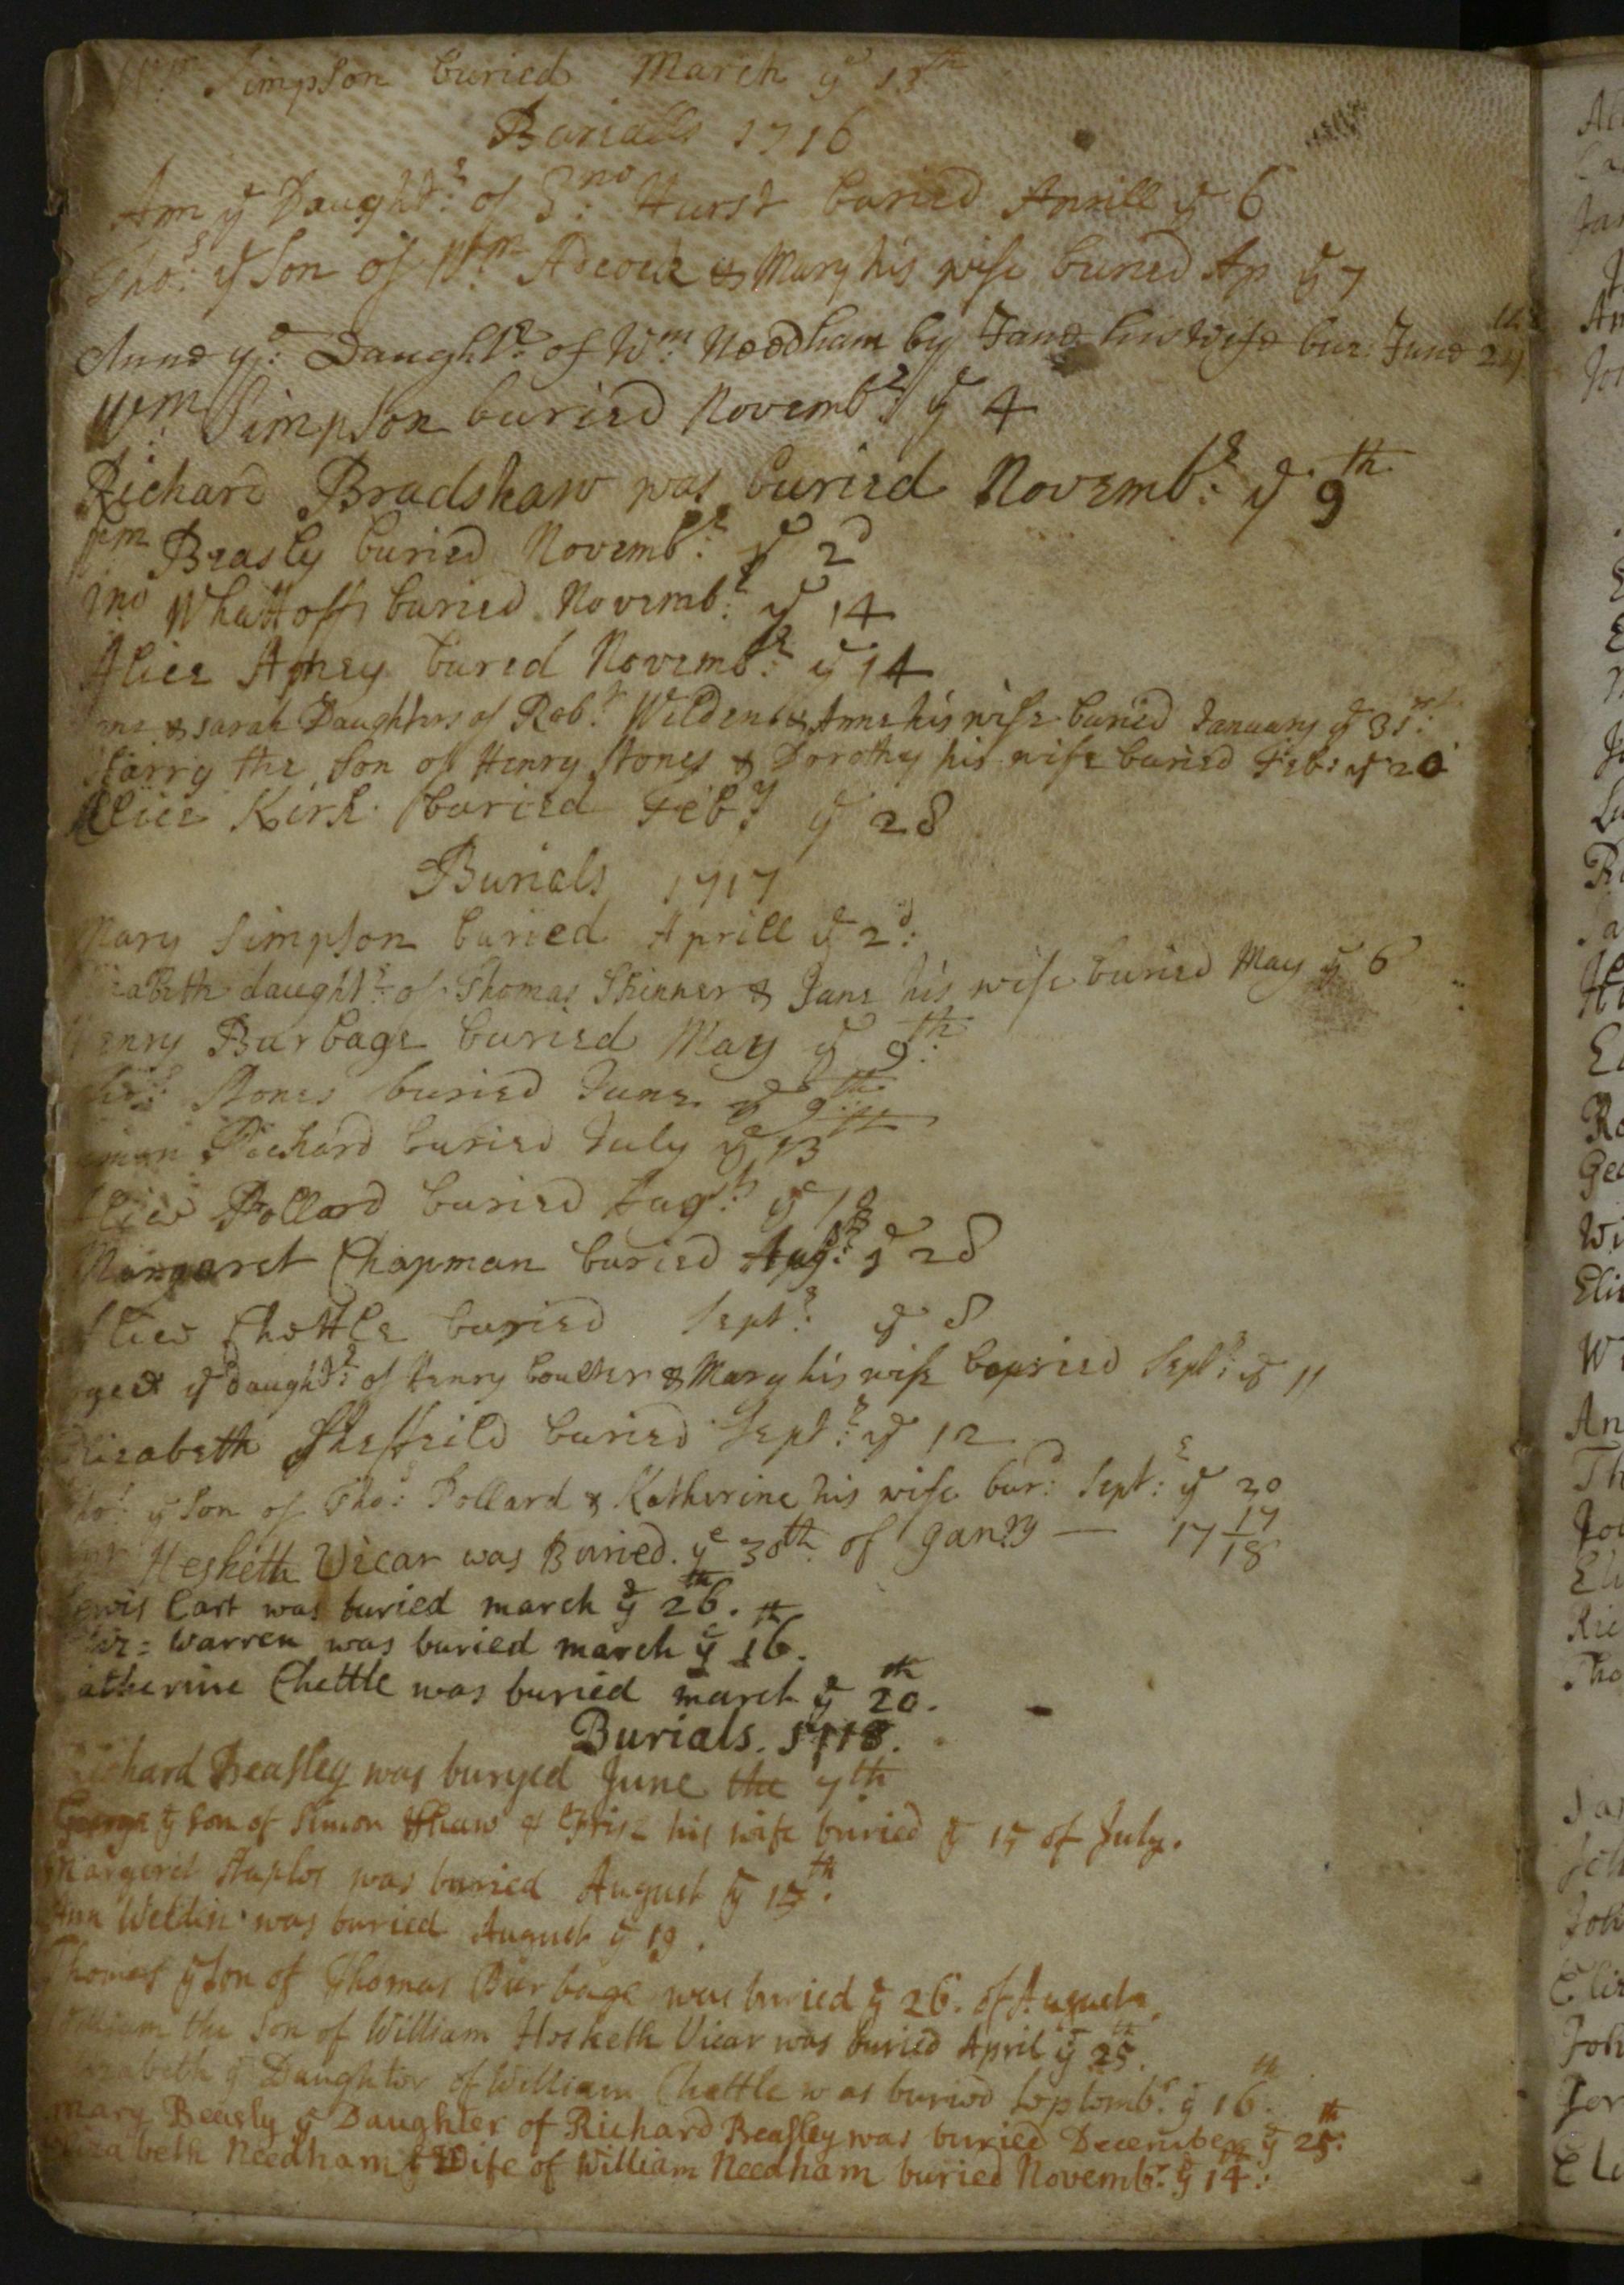 Simpson buried March ye
Burialls 1716
Ann ye Daughtr: of Jno: Hurst buried Aprill ye 6
Thos: ye Son of Wm: Adcock & Mary his wife buried Ap ye 7
Anne ye: Daughtr: of Wm: Needham by Jane his Wife bur: June
Wm Simpson buried Novembr: ye 4
Richard Bradshaw was buried Novembr: ye 9th
Wm Beasly buried Novembr: ye 2d
Jno Whattoff buried Novembr: ye 14
Alice bured Novembr: ye 14
& Sarah Daughters of Robt: & Anne his wife buried January ye 31st:
Harry the Son of Henry Stones & Dorothy his wife buried Feb: ye 20
Alice Kirk buried Feby: ye 28
Burials 1717
Mary Simpson buried Aprill ye 2d:
daughtr: of Thomas Skinner & Jane his wife buried May ye 6
Henry Burbage buried May ye 9th:
Stones buried June ye 9th:
Richard buried July ye 13th
Pollard buried Augst: ye 18
Margaret Chapman buried Augst: ye 28
Chettle buried Septr: ye 8
ye Daughtr: of Henry & Mary his wife buried Septr: ye 11
Elizabeth Sheffeild buried Septr: ye 12
Tho: ye Son of Tho: Pollard & Katherine his wife bur: Septr: ye 20
Hesketh Vicar was Buried. ye 30th of Janry — 17 17/18
Lewis Cart was buried march ye 26th.
Warren was buried march ye 16th.
Catherine Chettle was buried march ye 20th.
Burials. 1718.
Richard Beasley was buryed June the 7th
George ye son of Simon & his wife buried ye 15 of July.
Margeret was buried August ye 15th.
Ann Weldin was buried August ye 19.
Thomas ye Son of Thomas Burbage was buried ye 26. of August.
William the Son of William Hesketh Vicar was buried April ye 25th.
Elizabeth ye Daughter of William Chettle was buried Septembr. ye 16th.
Mary Beasly ye Daughter of Richard Beasley was buried December ye 25th:
Elizabeth Needham ye Wife of William Needham buried Novembr. ye 14th: